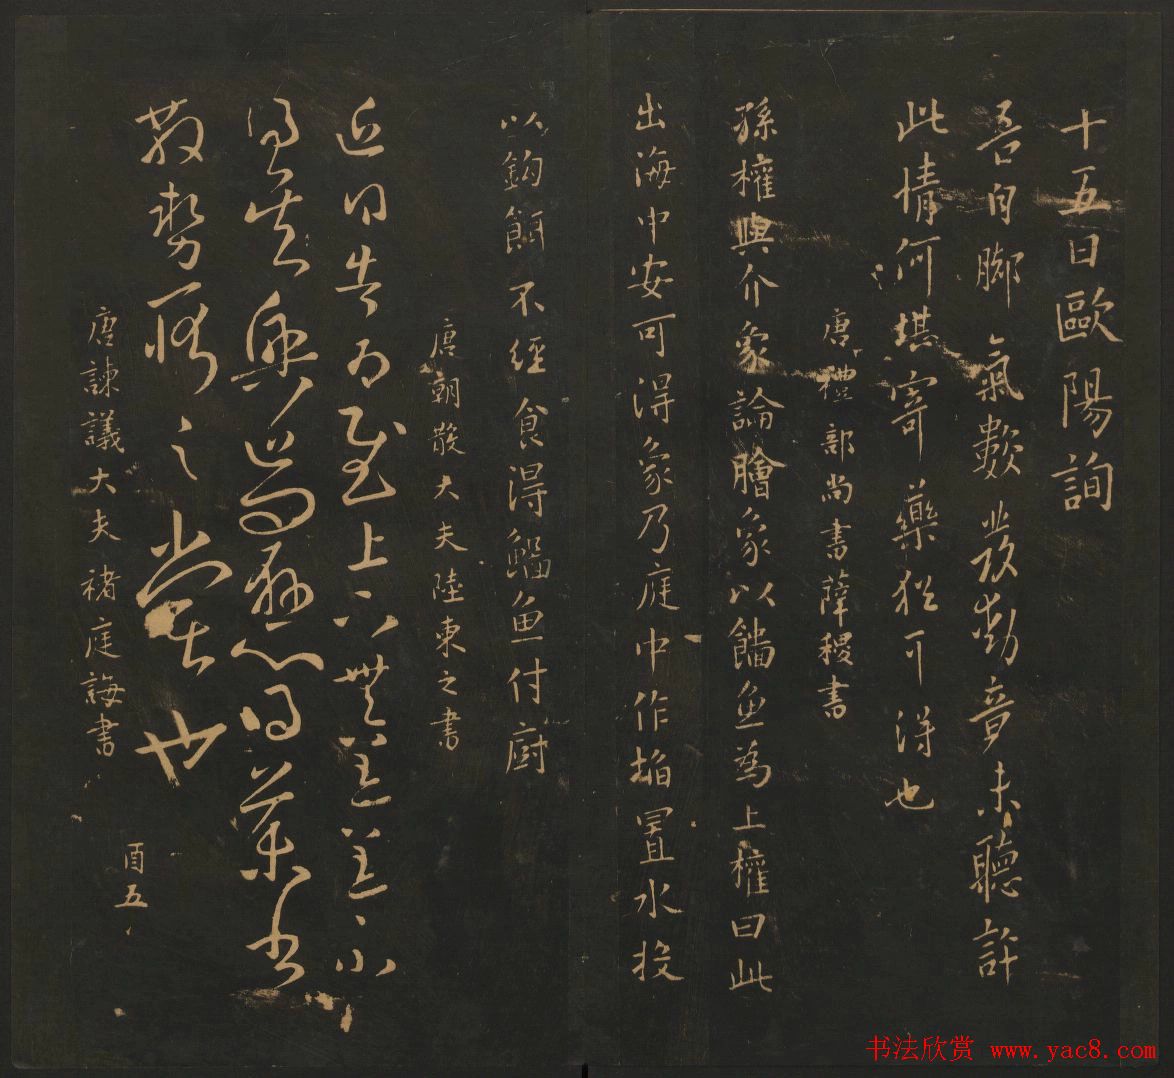 十五日歐陽詢
吾自脚氣數發動竟未聽許
此情何堪寄藥猶可得也
唐禮部尚書薛稷書
孫權與介象論膾象以鯔魚為上權曰此
出海中安可得象乃庭中作埳置水投
以鈎餌不經食得鯔魚付厨
唐朝散大夫陸柬之書
近日告為慰上下無
散勢 之 也
唐諫議大夫褚庭誨書
酉五
书法欣赏 www.yac8.com